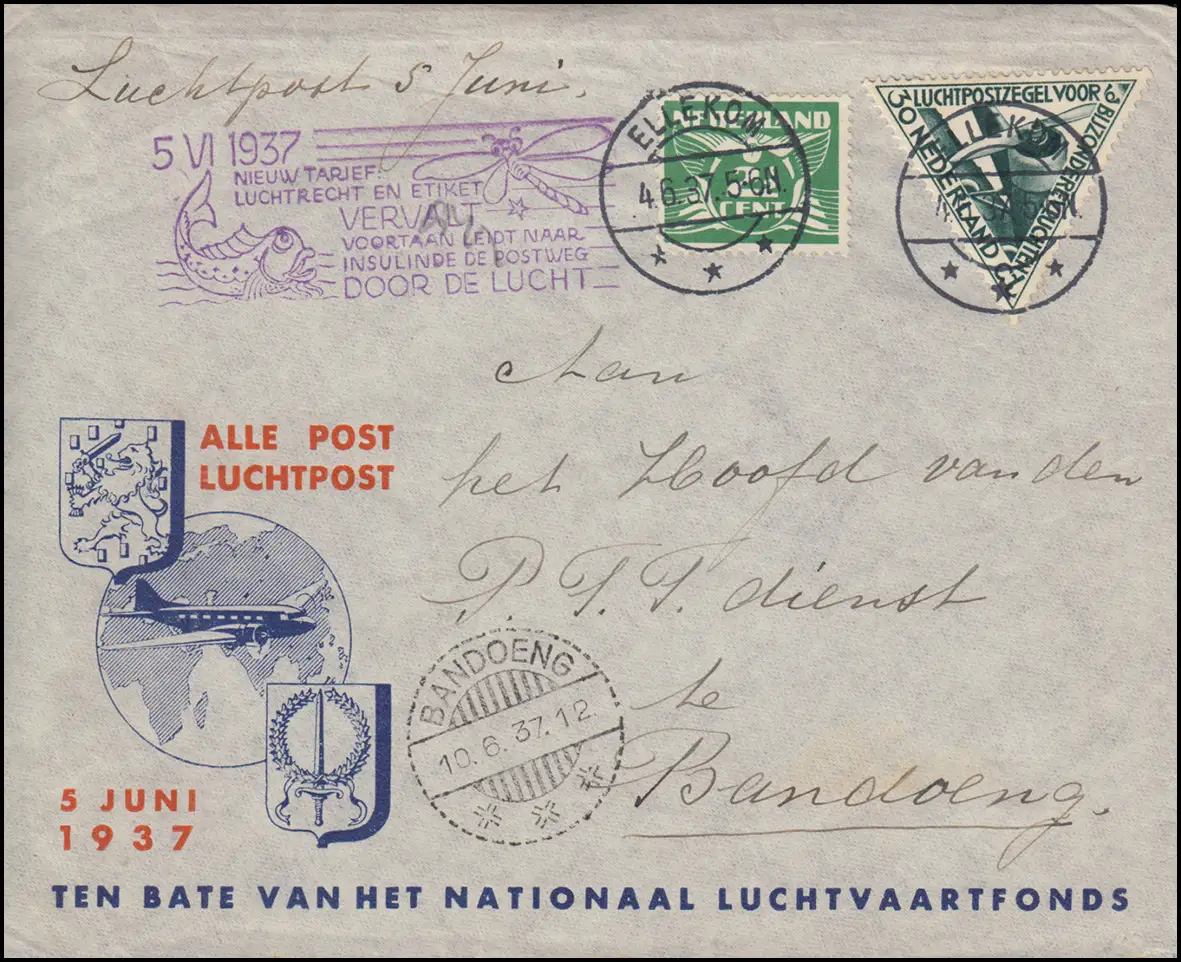 Luchtpost 5 Juni.
5 VI 1937
NIEUW TARIEF:
LUCHTRECHT EN ETIKET
VERVALT
VOORTAAN LEIDT NAAR
INSULINDE DE POSTWEG
DOOR DE LUCHT
NEDERLAND
CENT
ELLEKOM
4.6.37.5-6N.
LUCHTPOSTZEGEL VOOR
BIJZONDERE VLUCHTEN
30 NEDERLAND CT
Aan
het Hoofd van den
P. T. T. dienst
te
Bandoeng.
ALLE POST
LUCHTPOST
BANDOENG
10.6.37.12.
5 JUNI
1937
TEN BATE VAN HET NATIONAAL LUCHTVAARTFONDS